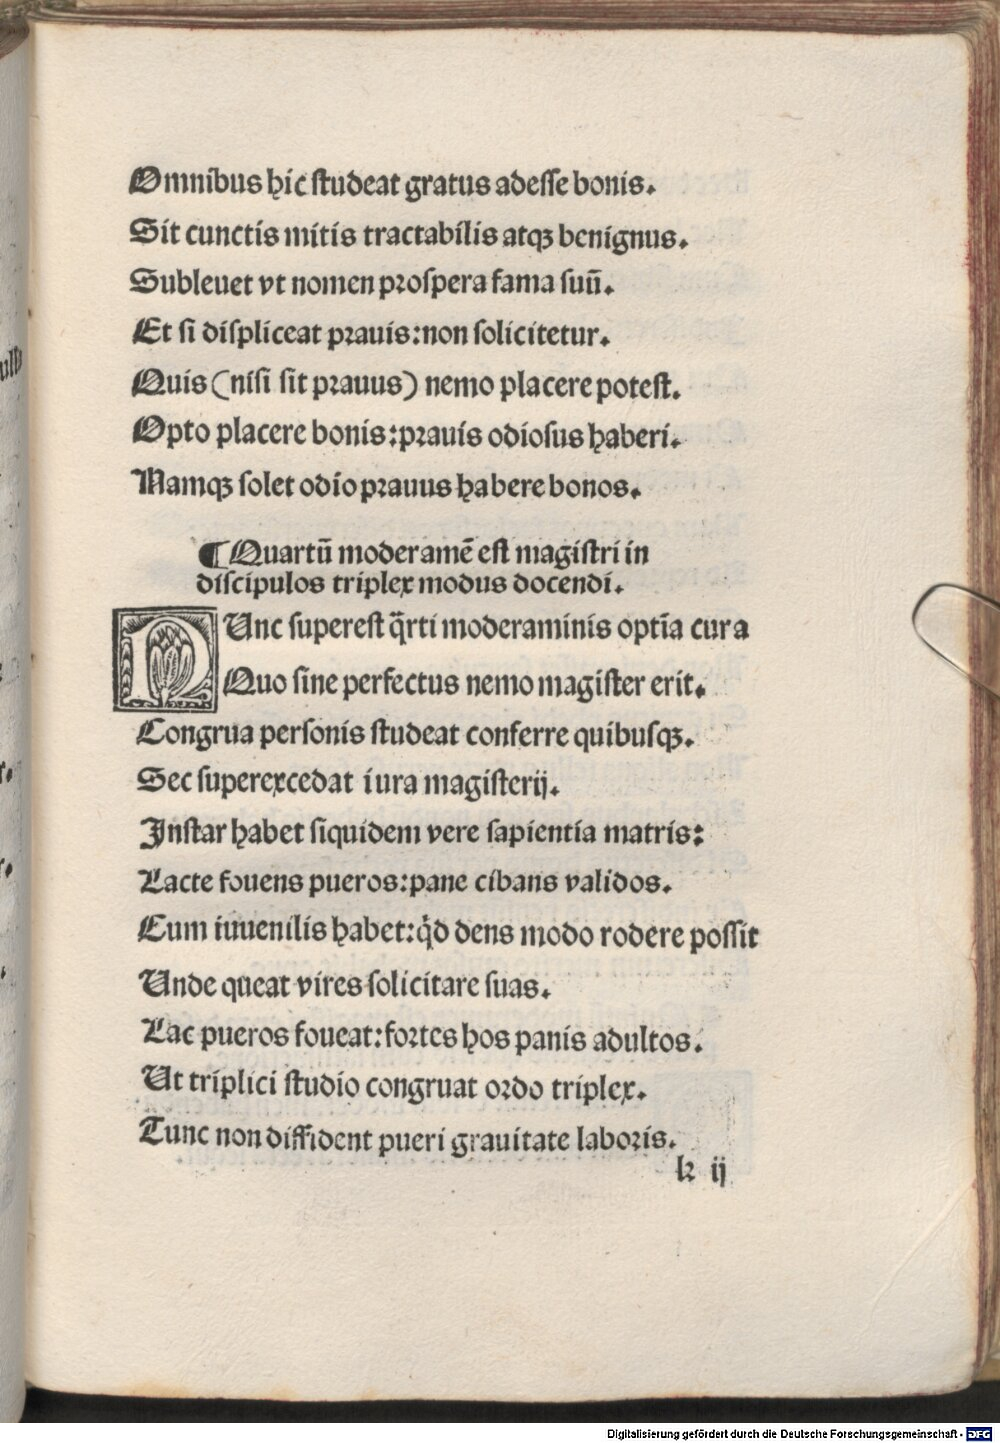 Omnibus hic studeat gratus adesse bonis.
Sit cunctis mitis tractabilis atqꝫ benignus.
Subleuet vt nomen prospera fama suū.
Et si displiceat prauis:non solicitetur.
Quis (nisi sit prauus) nemo placere potest.
Opto placere bonis:prauis odiosus haberi.
Namqꝫ solet odio prauus habere bonos.
¶ Quartū moderamē est magistri in
discipulos triplex modus docendi.
NUnc superest q̄rti moderaminis optīa cura
Quo sine perfectus nemo magister erit.
Congrua personis studeat conferre quibusqꝫ.
Sec superexcedat iura magisterij.
Instar habet siquidem vere sapientia matris:
Lacte fouens pueros:pane cibans validos.
Cum iuuenilis habet:qd̓ dens modo rodere possit
Unde queat vires solicitare suas.
Lac pueros foueat:fortes hos panis adultos.
Ut triplici studio congruat ordo triplex.
Tunc non diffident pueri grauitate laboris.
k ij
Digitalisierung gefördert durch die Deutsche Forschungsgemeinschaft - DFG